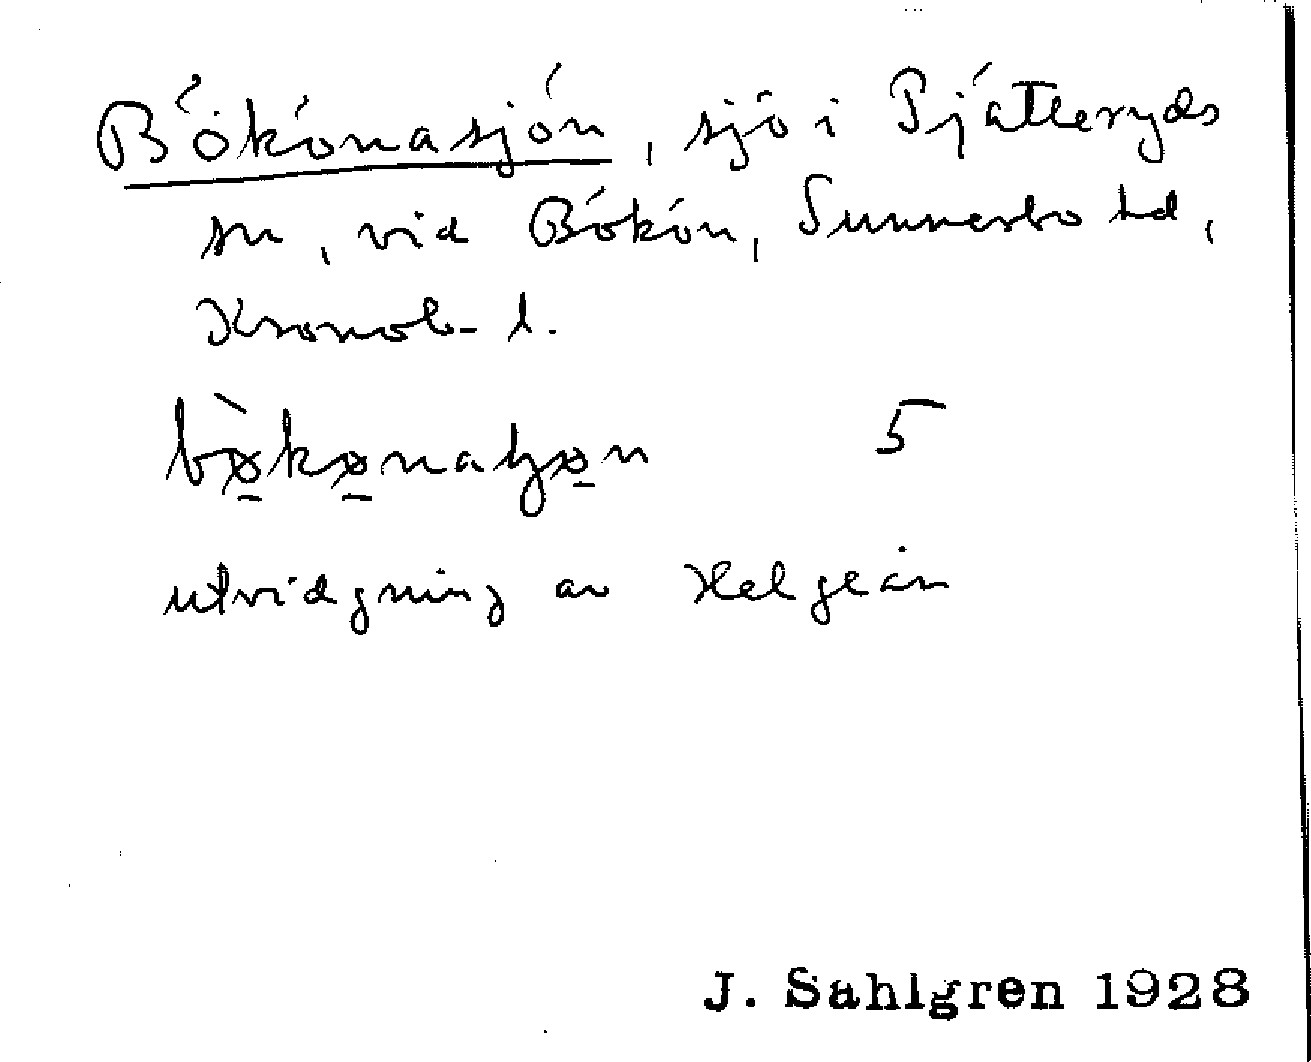 Bökönasjön, sjö i Pjätteryds
sn, vid Bökön, Sunnerbo hd,
Kronob. l.
bø̠̀kø̠naʃø̠n 5
utvidgning av Helgeån
J. Sahlgren 1928